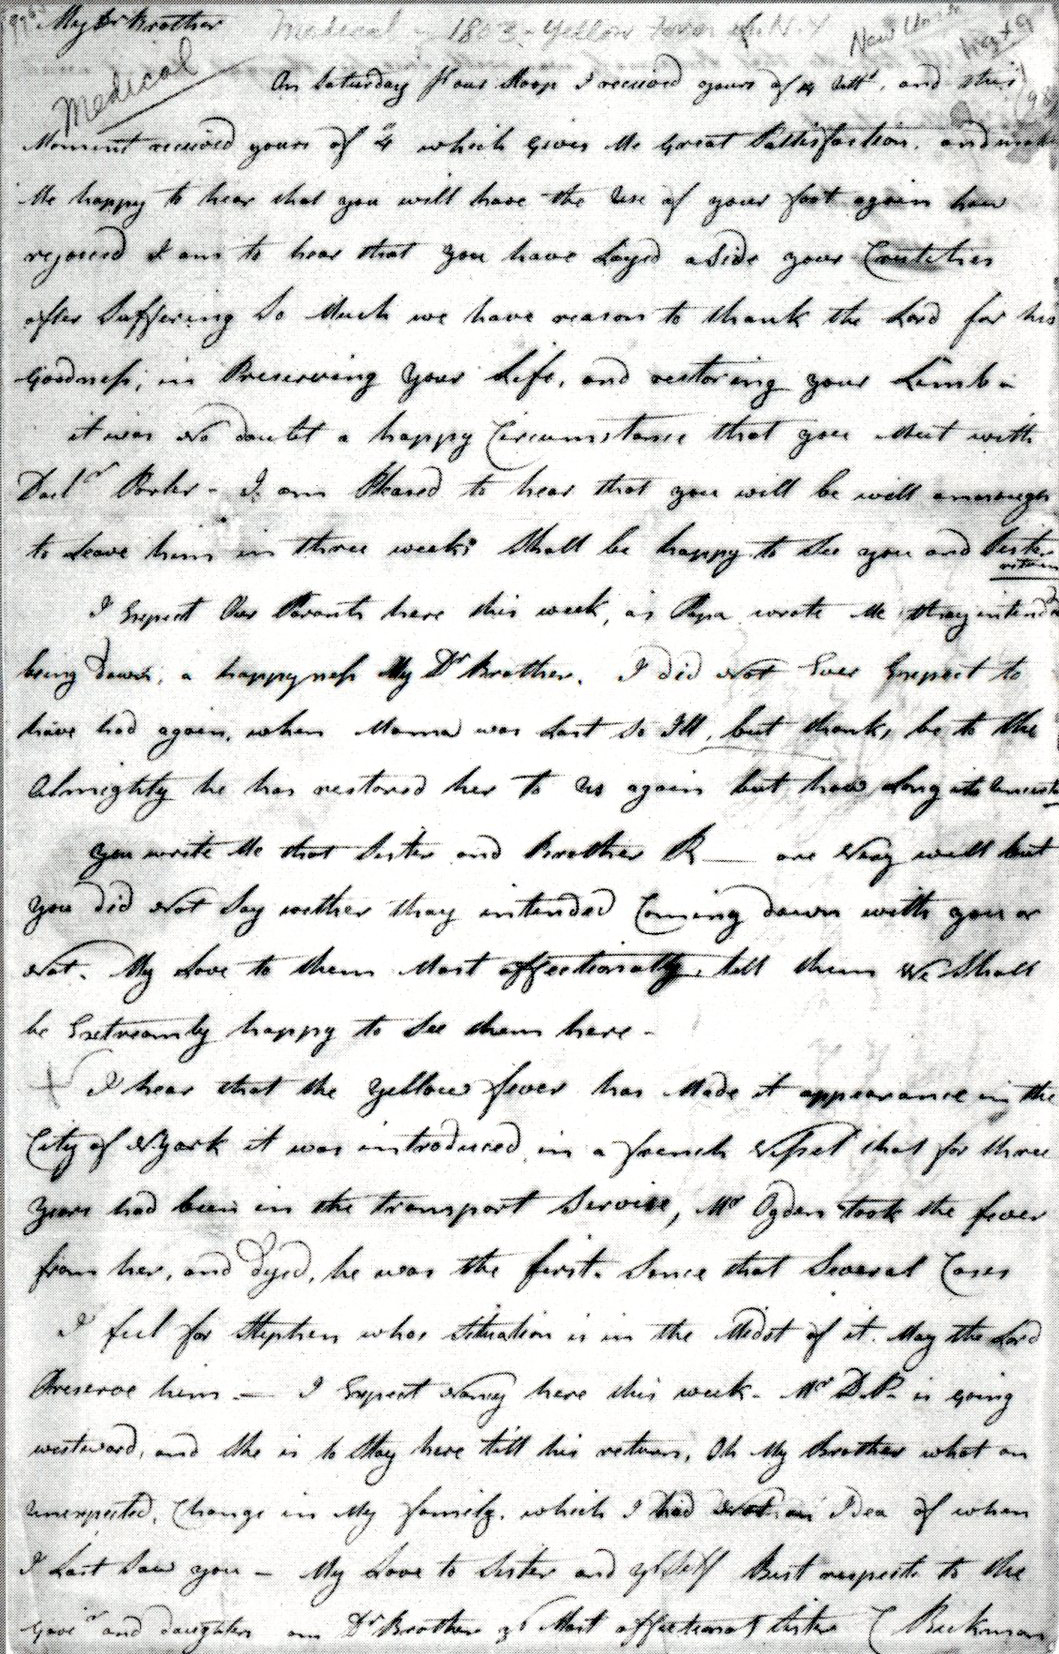 My Dr Brother Medical - 1803 - Yellow Fever in N.Y
Medical
On Saturday pr our Sloop I received yours of 14 Ultt, and this
Moment received yours of 4 which gives Me Great Sattisfaction, and make
Me happy to hear that you will have the Use of your foot again how
rejoiced I am to hear that you have Layed aSide your Crutches
after Suffering So Much we have reason to thank the Lord for his
Goodness, in Preserving Your Life, and restoring your Limb -
it was No doubt a happy Circumstance that you Meet with
Doctr - I am Pleased to hear that you will be well
to Leave him in three weeks Shall be happy to See you and Sister
return
I Expect Our Parants here this week, as Papa wrote Me thay intend
being down, a happyness My Dr Brother. I did Not Ever Expect to
have had again, when Mama was Last So Ill, but thanks be to the
Almighty he has restored her to Us again but how Long
You write Me that Sister and Brother R — are Very well but
You did Not Say wether thay intended Coming down with you or
Not. My Love to them Most affectionatly, tell them We Shall
be Extreamly happy to See them here -
X I hear that the Yellow fever has Made it appearance in the
City of N.York it was introduced in a french Vessel that for three
Years had been in the transport Service, Mr Ogden took the fever
from her, and Dyed, he was the first. Sence that Several Cases
I feel for Stephen whos Situation is in the Midst of it. May the Lord
Preserve him. — I Expect Nancy here this week - Mr D.P. is going
westward, and She is to Stay here till his return, Oh My Brother what an
Unexpected, Change in My family. which I had Not an Idea of when
I Last Saw you - My Love to Sister and yrSelf Best respects to the
Govr and daughters am Dr Brother yr Most affectionat Sister C Beekman